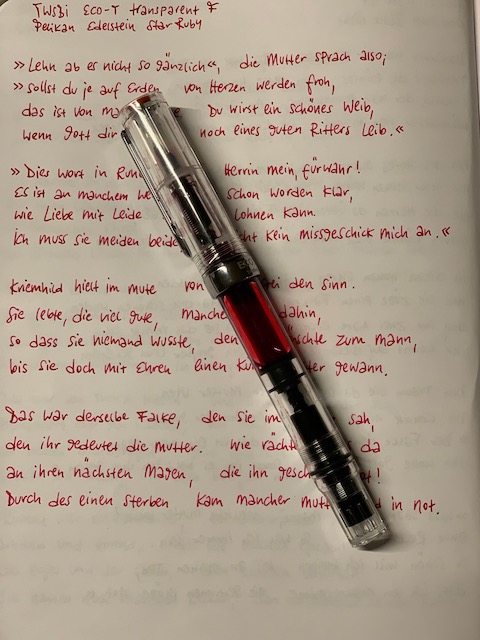 TWSBi ECO-T transparent F
Pelikan Edelstein Star Ruby
»Lehn ab es nicht so gänzlich«, die Mutter sprach also;
»sollst du je auf Erden von Herzen werden froh,
das ist von Du wirst ein schönes Weib,
wenn Gott dir noch eines guten Ritters Leib.«
»Dies Wort in Herrin mein, fürwahr!
Es ist an manchem schon worden klar,
wie Liebe mit Leide lohnen kann.
Ich muss sie meiden beide kein missgeschick mich an.«
Kriemhild hielt im mute von den sinn.
Sie lebte, die viel gute, dahin,
so dass sie niemand wusste, den zum mann,
bis sie doch mit Ehren einen gewann.
Das war derselbe Falke, den sie im sah,
den ihr gedeutet die Mutter. Wie da
an ihren nächsten Magen, die ihn
Durch des einen sterben kam mancher in not.